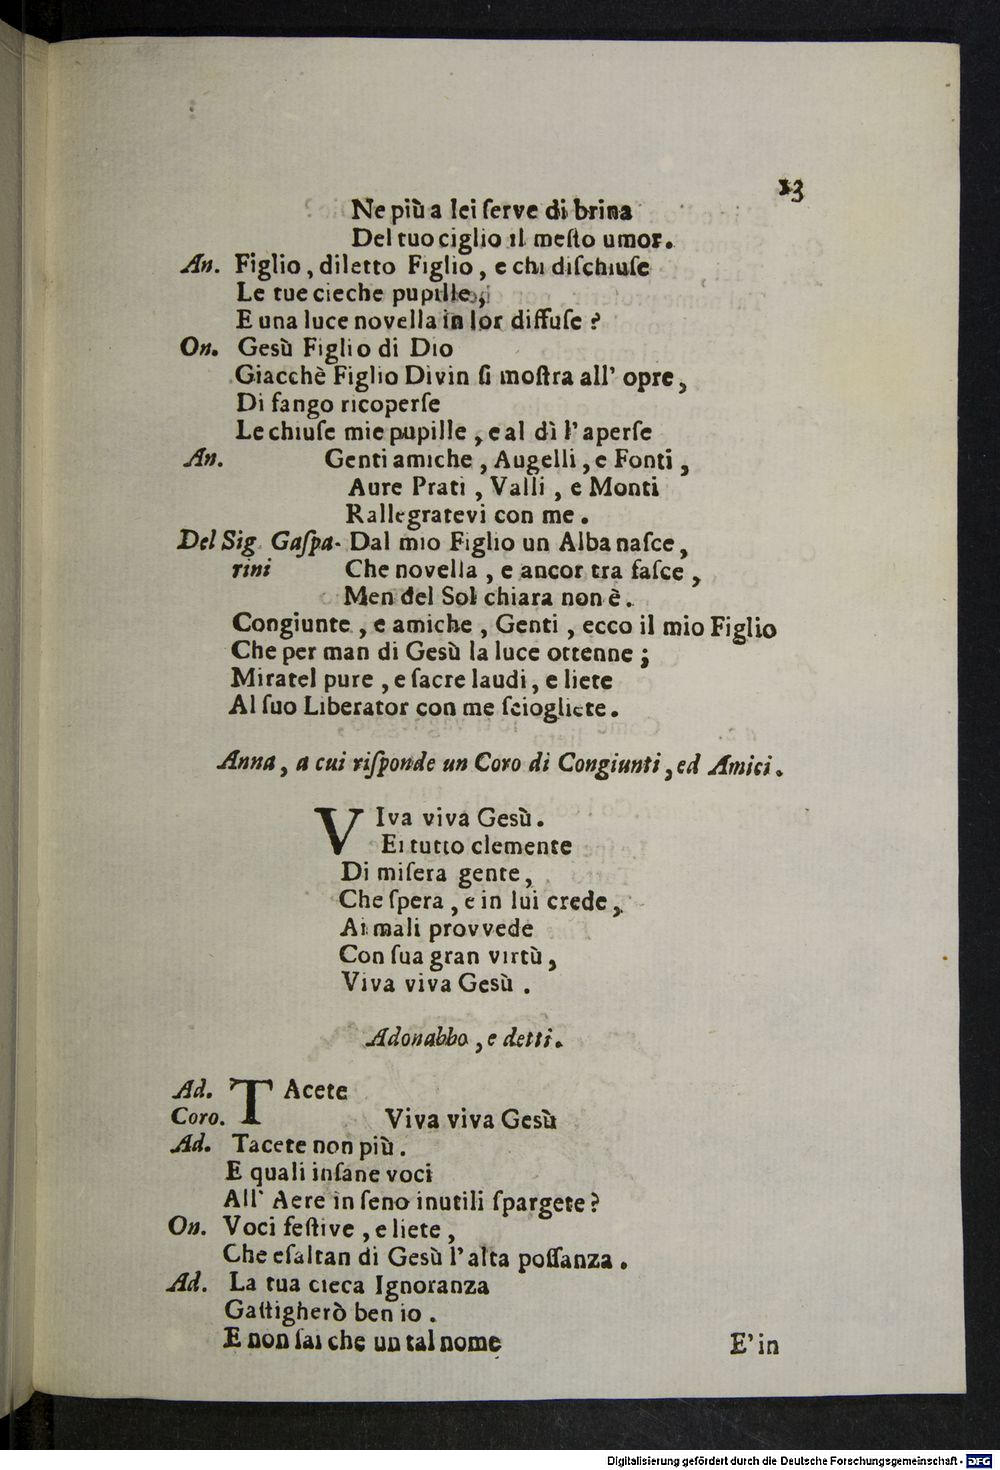 23
Ne più a lei ſerve di brina
Del tuo ciglio il meſto umor.
An. Figlio, diletto Figlio, e chi diſchiuſe
Le tue cieche pupille,
E una luce novella in lor diffuſe?
On. Gesù Figlio di Dio
Giacchè Figlio Divin ſi moſtra all' opre,
Di fango ricoperſe
Le chiuſe mie pupille, e al dì l'aperſe
An. Genti amiche, Augelli, e Fonti,
Aure Prati, Valli, e Monti
Rallegratevi con me.
Del Sig. Gaſpa- Dal mio Figlio un Alba naſce,
rini Che novella, e ancor tra faſce,
Men del Sol chiara non è.
Congiunte, e amiche, Genti, ecco il mio Figlio
Che per man di Gesù la luce ottenne;
Miratel pure, e ſacre laudi, e liete
Al ſuo Liberator con me ſciogliete.
Anna, a cui riſponde un Coro di Congiunti, ed Amici.
VIva viva Gesù.
Ei tutto clemente
Di miſera gente,
Che ſpera, e in lui crede,
Ai mali provvede
Con ſua gran virtù,
Viva viva Gesù.
Adonabbo, e detti.
Ad. TAcete
Coro. Viva viva Gesù
Ad. Tacete non più.
E quali inſane voci
All' Aere in ſeno inutili ſpargete?
On. Voci feſtive, e liete,
Che eſaltan di Gesù l'alta poſſanza.
Ad. La tua cieca Ignoranza
Gaſtigherò ben io.
E non ſai che un tal nome
E' in
Digitalisierung gefördert durch die Deutsche Forschungsgemeinschaft - DFG